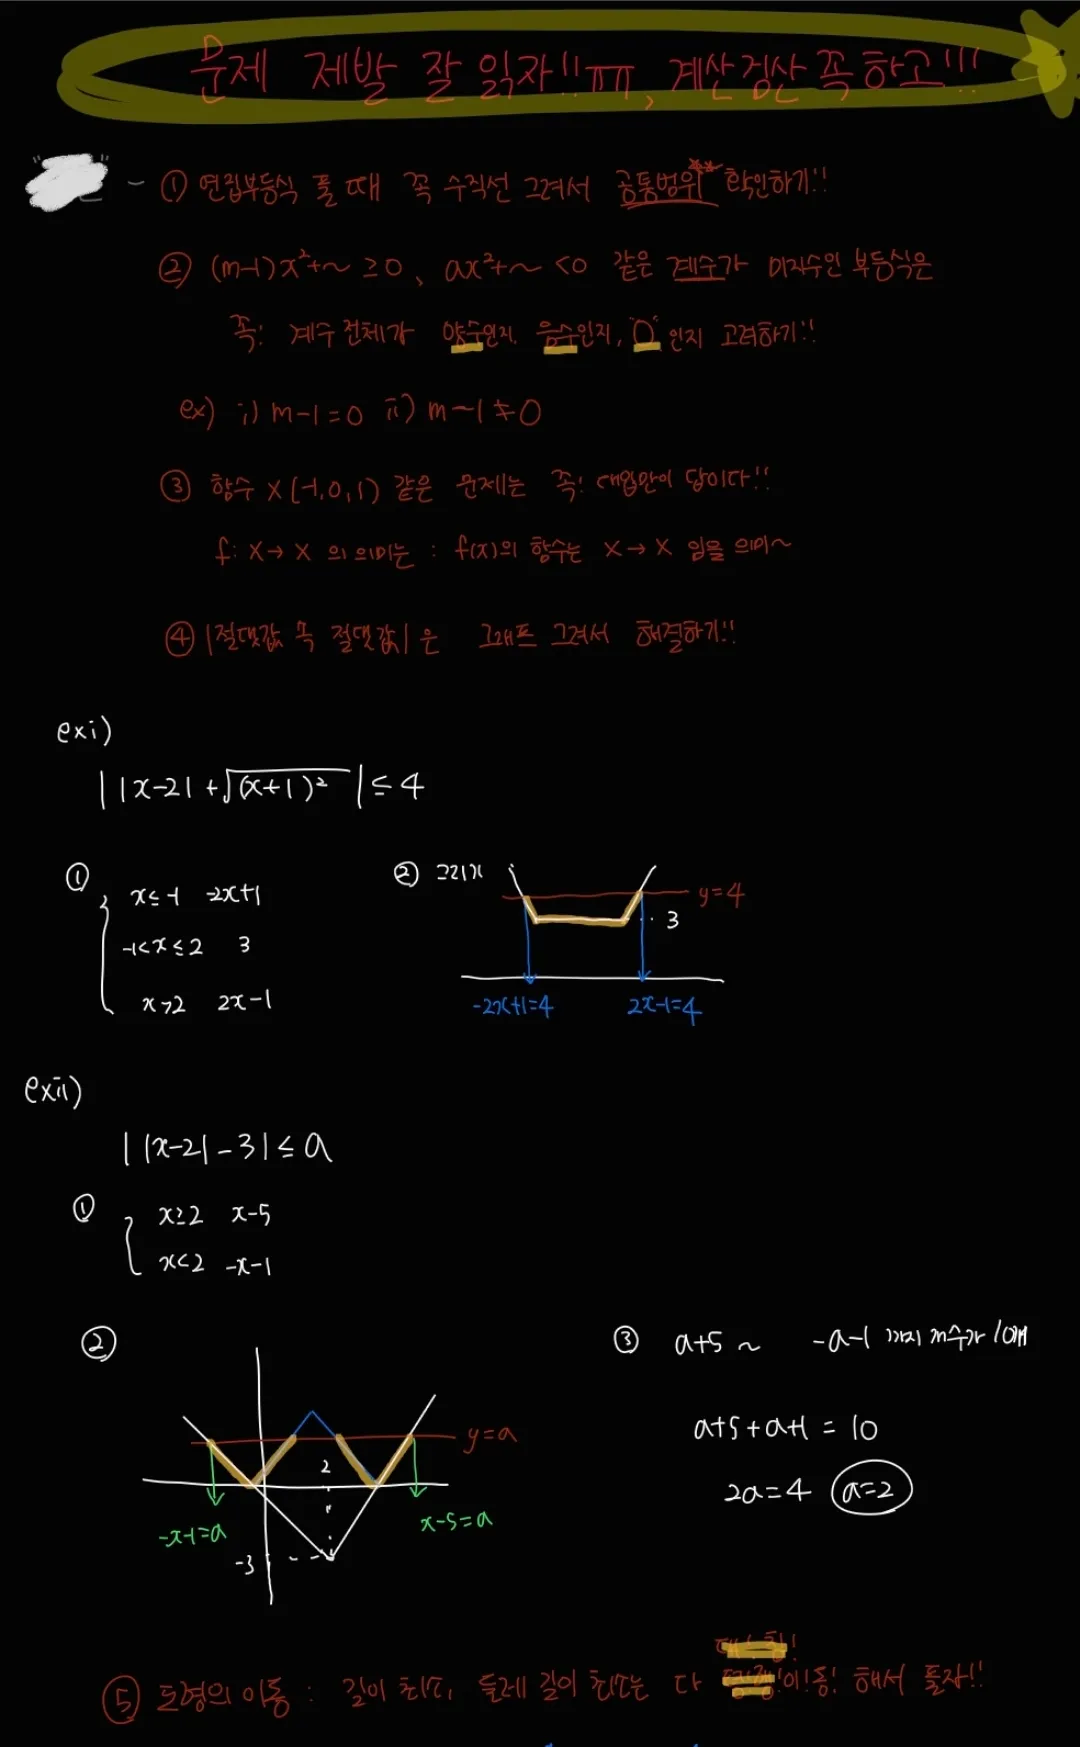 문제 제발 잘 읽자!! ㅠㅠ, 계산검산 꼭 하고!!!
- ① 연립부등식 풀 때 꼭 수직선 그려서 공통범위** 확인하기!!
② (m-1)x²+~ ≥0, ax²+~ <0 같은 계수가 미지수인 부등식은
꼭! 계수 전체가 양수인지, 음수인지, "0"인지 고려하기!!
ex) i) m-1=0 ii) m-1≠0
③ 함수 X(-1,0,1) 같은 문제는 꼭! 대입만이 답이다!!
f: X→X 의 의미는 : f(x)의 함수는 X→X 임을 의미~
④ |절댓값 속 절댓값|은 그래프 그려서 해결하기!!
exi)
||x-2|+√(x+1)²|≤4
①
x≤-1 -2x+1
-1<x≤2 3
x>2 2x-1
②
y=4
3
-2x+1=4 2x-1=4
exii)
||x-2|-3|≤a
①
x≥2 x-5
x<2 -x-1
②
y=a
2
-x-1=a x-5=a
-3
③ a+5 ~ -a-1 까지 정수가 10개
a+5+a+1=10
2a=4 a=2
⑤ 도형의 이동 : 길이 최소, 둘레 길이 최소는 다 이!동! 해서 풀자!!